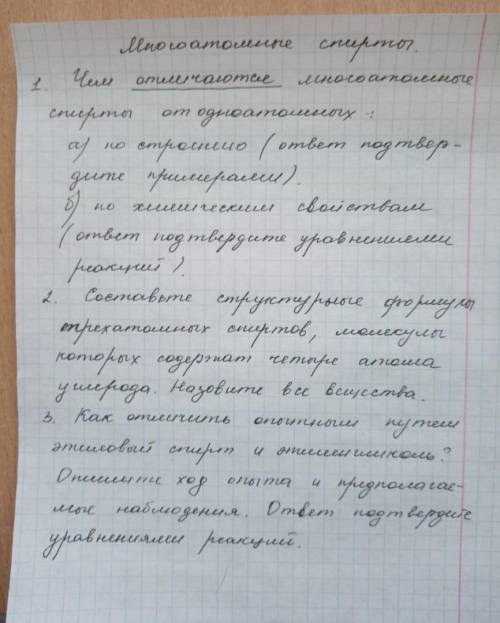 Многоатомные спирты.
1. Чем отличаются многоатомные
спирты от одноатомных:
а) по строению (ответ подтвер-
дите примерами).
б) по химическим свойствам
(ответ подтвердите уравнениями
реакций).
2. Составьте структурные формулы
трехатомных спиртов, молекулы
которых содержат четыре атома
углерода. Назовите все вещества.
3. Как отличить опытным путем
этиловый спирт и этиленгликоль?
Опишите ход опыта и предполагае-
мые наблюдения. Ответ подтвердите
уравнениями реакций.